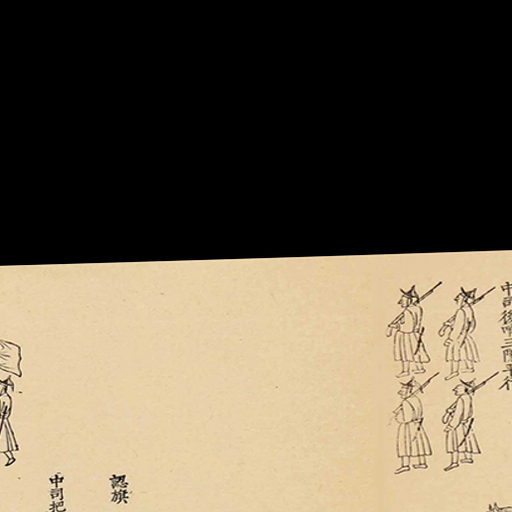 中司後哨三隊平行
認旗
中司把